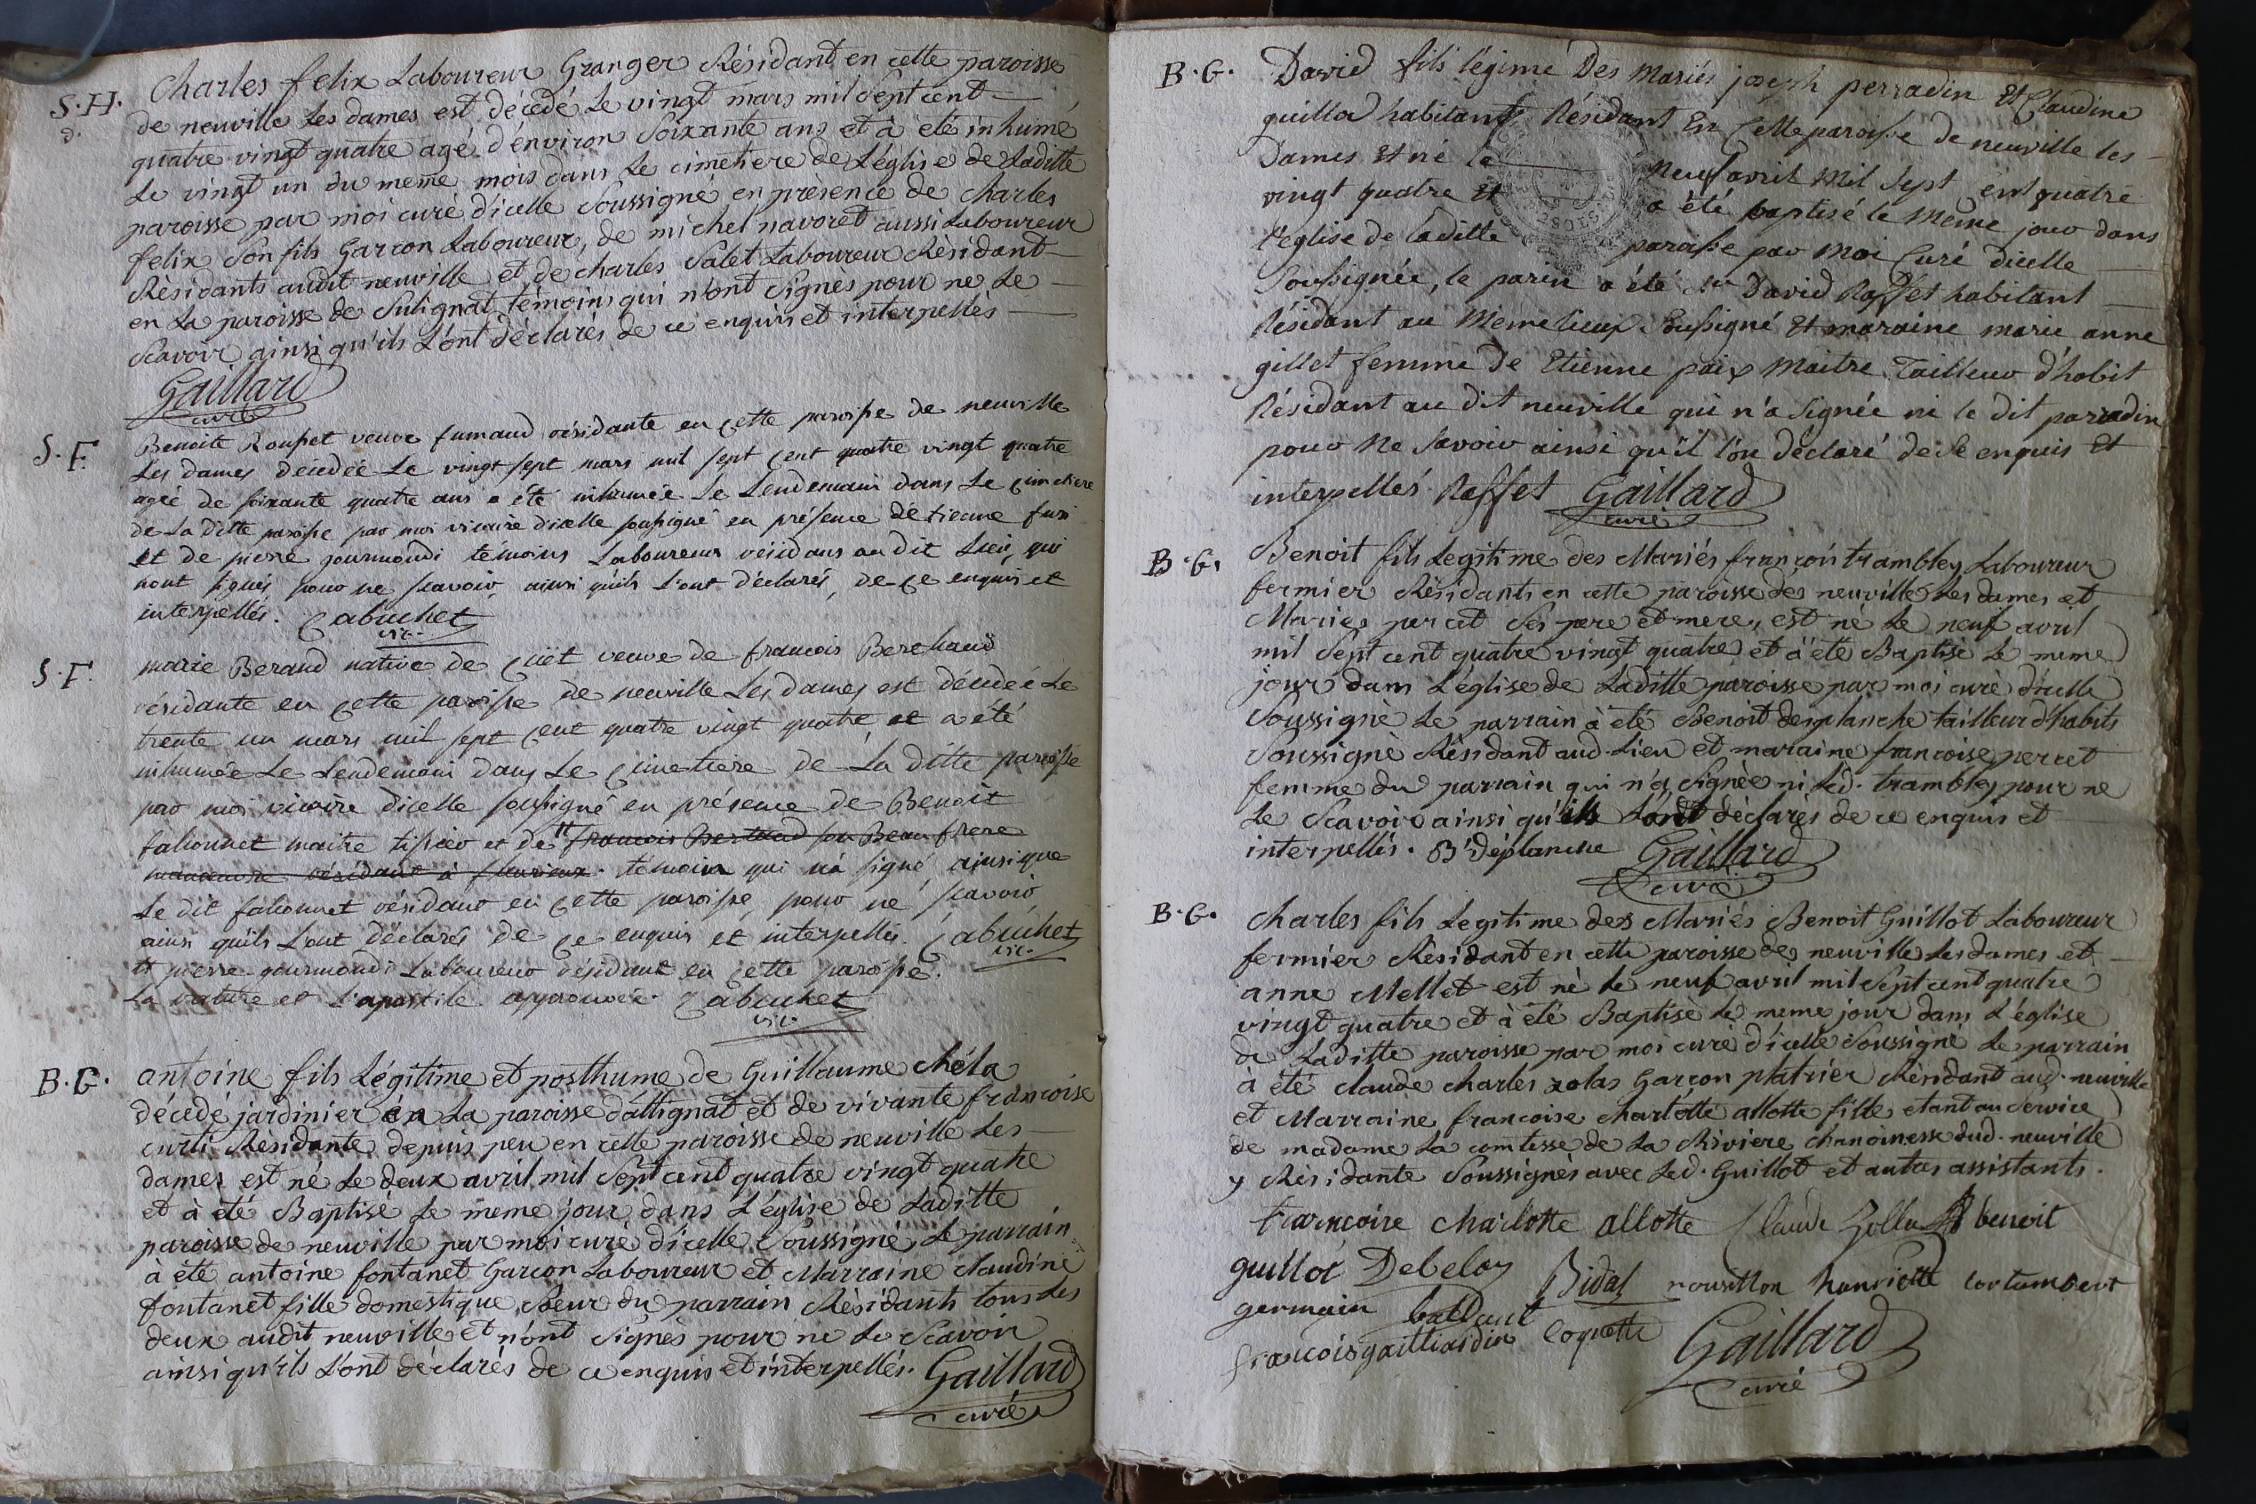 S.H.
d.
Charles felix Laboureur Granger Résidant en cette paroisse
de neuville Les dames est décedé Le vingt mars mil sept cent
quatre vingt quatre agé d'environ Soixante ans et à été inhumé
Le vingt un du meme mois dans Le cimetiere de L'église de Laditte
paroisse par moi curé d'icelle Soussigné en présence de charles
felix Son fils Garçon Laboureur, de michel navoret aussi Laboureur
Résidants audit neuville et de charles Salet Laboureur Résidant
en La paroisse de Sulignat témoins qui n'ont Signés pour ne Le
Scavoir ainsi qu'ils L'ont déclarés de ce enquis et interpellés
Gaillard
curé
S.F.
Benoite Rousset veuve fumaud résidante en cette paroisse de neuville
Les dames décédée Le vingt sept mars mil sept cent quatre vingt quatre
agée de soixante quatre ans a été inhumée Le Lendemain dans Le cimetiere
de La ditte paroisse par moi vicaire dicelle soussigné en présence détienne
et de pierre gourmondi témoins Laboureurs résidans au dit Lieu, qui
nont signés, pour ne scavoir, ainsi quils L'ont déclarés, de ce enquis et
interpellés. Cabuchet
vic.
S.F.
marie Beraud native de veuve de francois Berchaud
résidante en cette paroisse de neuville Les dames est décédée Le
trente un mars mil sept cent quatre vingt quatre, et a été
inhumée Le Lendemain dans Le cimetiere de La ditte paroisse
par moi vicaire dicelle soussigné en présence de Benoit
falionnet maitre tissier et de francois son Beau frere
résidant à témoin qui n'a signé, ainsi que
Le dit falionnet résidant en cette paroisse, pour ne scavoir
ainsi quils L'ont déclarés de ce enquis et interpellés. Cabuchet
vic.
et pierre gourmondi Laboureur résidant en cette paroisse.
La rature et L'apostile approuvée. Cabuchet
vic.
B.G.
antoine fils Légitime et posthume de Guillaume chéla
décedé jardinier en La paroisse d'attignat et de vivante francoise
curti Residante depuis peu en cette paroisse de neuville Les
dames est né Le deux avril mil Sept cent quatre vingt quatre
et à été Baptisé Le meme jour dans L'église de Laditte
paroisse de neuville par moi curé d'icelle Soussigné, Le parrain
à été antoine fontanet Garçon Laboureur et Marraine claudine
fontanet fille domestique Soeur du parrain Résidants tous Les
deux audit neuville et n'ont Signés pour ne Le Scavoir
ainsi qu'ils L'ont déclarés de ce enquis et interpellés. Gaillard
curé
B.G.
David fils légime Des Mariés joseph perradin Et Claudine
guillot habitants Résidant En Cette paroisse de neuville les
Dames Et né le neuf avril Mil Sept cent quatre
vingt quatre Et a été baptisé le Même jour dans
l'eglise de laditte paroisse par Moi Curé dicelle
Soussignée, le parin a été Sr David Raffet habitant
Résidant au Même lieux Soussigné Et maraine marie anne
gillet femme de Etienne paix Maitre Tailleur d'habit
Résidant au dit neuville qui n'a Signée ni le dit paradin
pour Ne Savoir ainsi qu'il l'on déclaré de Se enquis Et
interpellés. Raffet Gaillard
curé
B.G.
Benoit fils Legitime des Mariés françois trambley Laboureur
fermier Résidants en cette paroisse de neuville Les dames et
Marie percet Ses pere et mere, est né Le neuf avril
mil Sept cent quatre vingt quatre et à été Baptisé Le meme
jour dans L'église de Laditte paroisse par moi curé d'icelle
Soussigné Le parrain à été Benoit desplanche tailleur d'habits
Soussigné Résidant aud. Lieu et maraine francoise perret
femme du parrain qui n'a Signée ni Led. trambley pour ne
Le Scavoir ainsi qu'ils L'ont déclarés de ce enquis et
interpellés. Bt Déplanche Gaillard
curé
B.G.
charles fils Legitime des Mariés Benoit Guillot Laboureur
fermier Résidant en cette paroisse de neuville Les dames et
anne Mellet est né Le neuf avril mil Sept cent quatre
vingt quatre et à été Baptisé Le meme jour dans L'église
de Laditte paroisse par moi curé d'icelle Soussigné Le parrain
à été claude charles zolas Garçon platrier Résidant aud. neuville
et Marraine francoise charlotte allotte fille etant au Service
de madame La comtesse de La Riviere chanoinesse dud. neuville
y Résidante Soussignés avec Led. Guillot et autres assistants.
francoise charlotte allotte Claude Zolla benoit
guillot Debeloy Bidal rousillon henriette cortambert
germain balland
francois gailliardin coquette Gaillard
curé